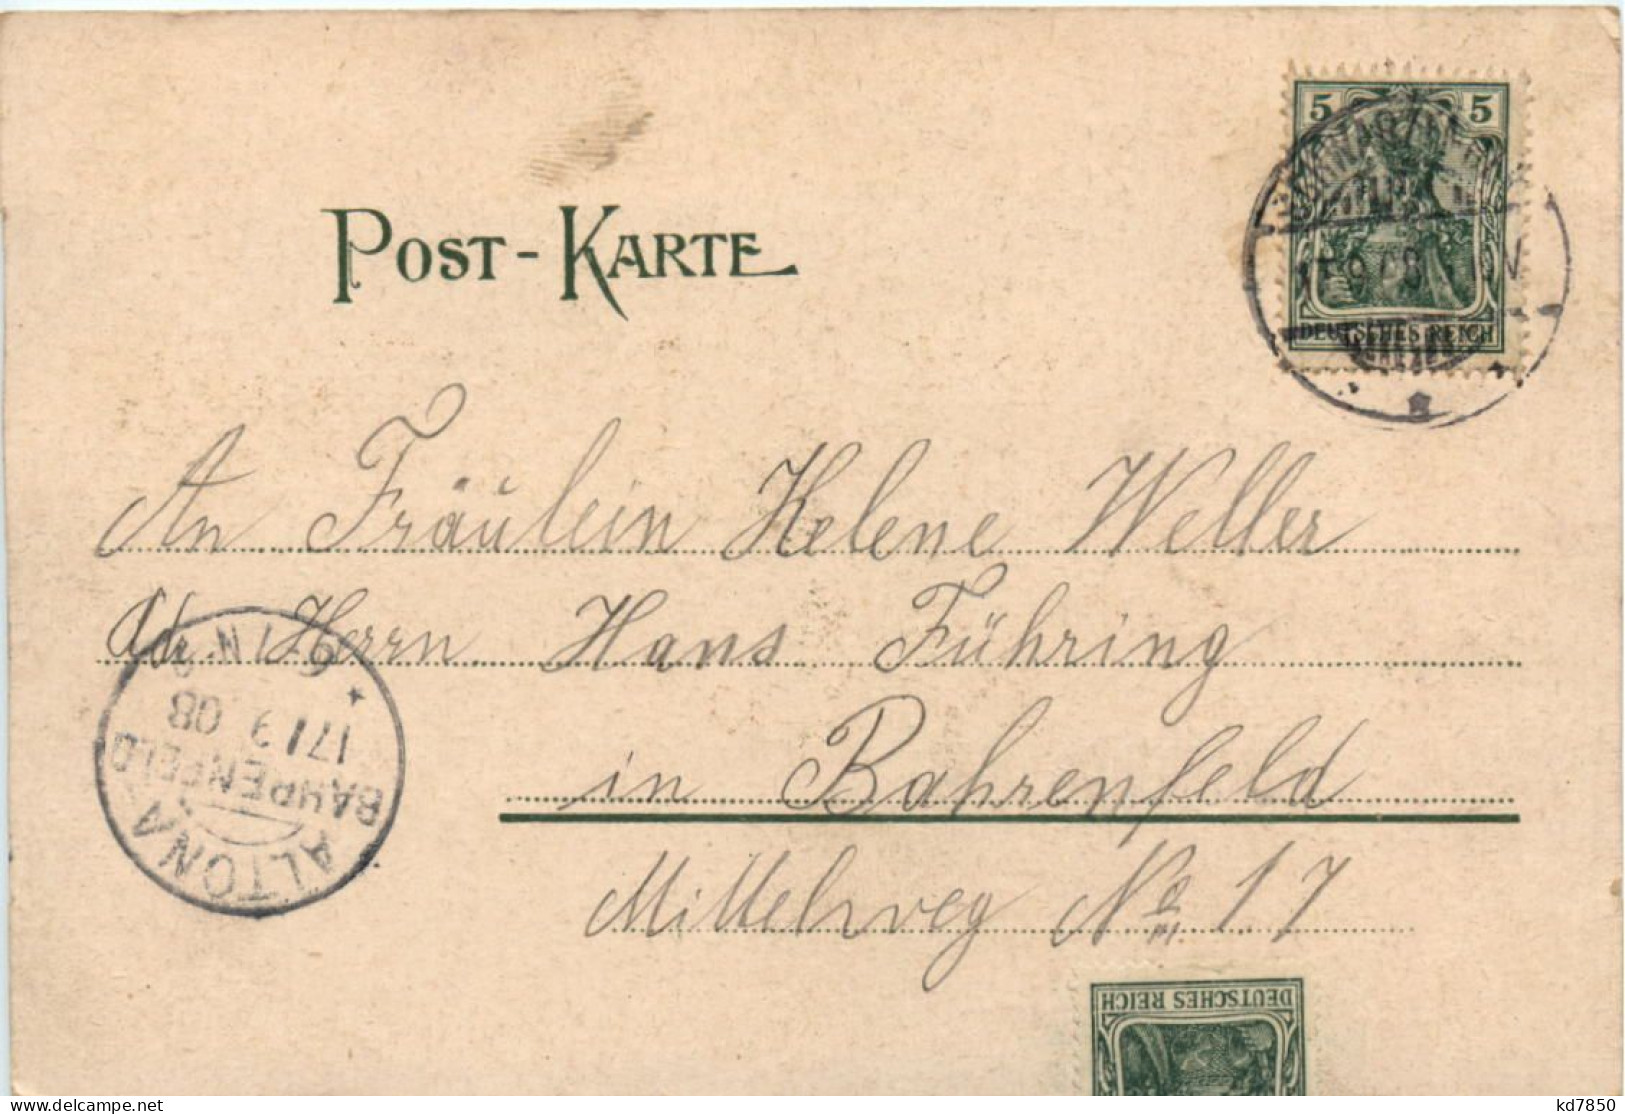 POST-KARTE
5 5
9 08
DEUTSCHES REICH
An Fräulein Helene Weller
Adr. Herrn Hans Führing
in Bahrenfeld
Mittelweg No 17
ALTONA
BAHRENFELD
17/9 08
6-7 N
DEUTSCHES REICH
delcampe.net
kd7850